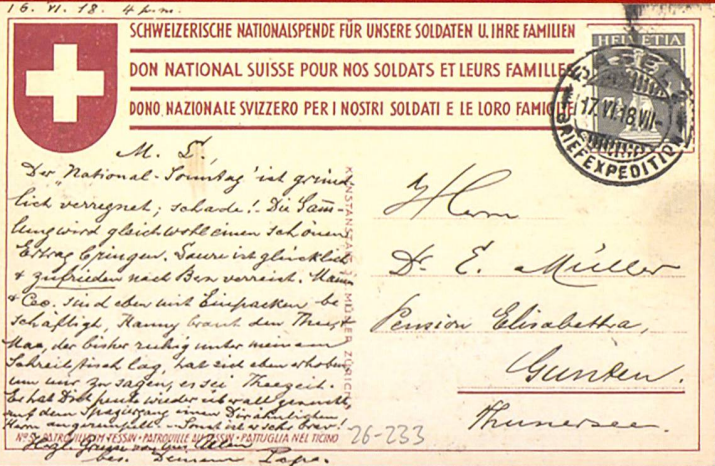 16. VI. 18. 4 p.m.
SCHWEIZERISCHE NATIONALSPENDE FÜR UNSERE SOLDATEN U. IHRE FAMILIEN
DON NATIONAL SUISSE POUR NOS SOLDATS ET LEURS FAMILLES
DONO NAZIONALE SVIZZERO PER I NOSTRI SOLDATI E LE LORO FAMIGLIE
HELVETIA
BASEL
17.VI.18.VII-
BRIEFEXPEDITION
M. L.
Der "National-Sonntag" ist gründ-
lich verregnet; schade! Die Samm-
lung wird gleichwohl einen schönen
Ertrag bringen. ist glücklich
& zufrieden nach Bern verreist.
& Ceo. sind eben mit Einpacken be
schäftigt, Hanny braut den Thee,
der bisher ruhig unter meinem
Schreibtisch lag, hat sich eben erhoben
um mir zu sagen, es sei Theezeit.
Er hat Dich heute wieder überall gesucht,
auf dem Spaziergang einen Dir ähnlichen
Herrn angerempelt. - Sonst ist er sehr brav!
Herzl. Grüsse von uns Allen
bes. Deinem Papa.
KUNSTANSTALT J.C. MÜLLER ZÜRICH
Herrn
Dr. E. Müller
Pension Elisabettha,
Gunten.
Thunersee.
No 5. PATROUILLE IM TESSIN • PATROUILLE AU TESSIN • PATTUGLIA NEL TICINO
26-233